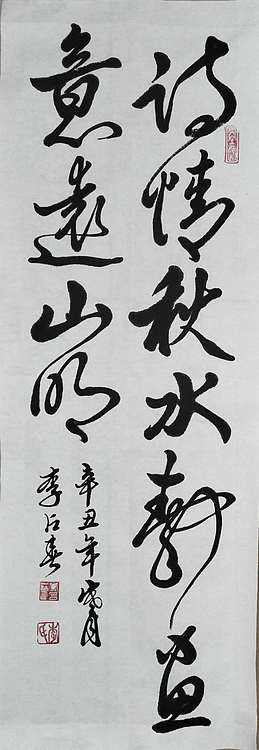 诗情秋水静画
意远山明
辛丑年戌月
李江春